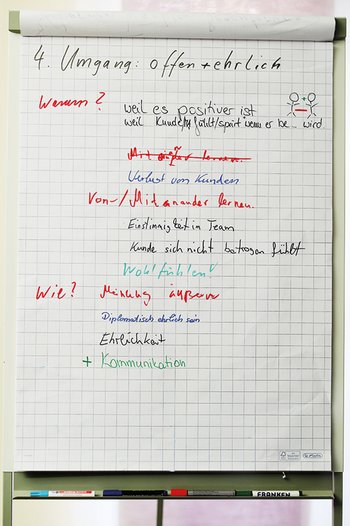 4. Umgang: offen + ehrlich
Warum? weil es positiver ist
weil Kunde fühlt/spürt wenn er be... wird
Mit lernen.
Verlust von Kunden
Von-/Miteinander lernen.
Einstimmigkeit in Team
Kunde sich nicht betrogen fühlt
Wohlfühlen!
Wie? Meinung äußern
Diplomatisch ehrlich sein
Ehrlichkeit
+ Kommunikation
FRANKEN